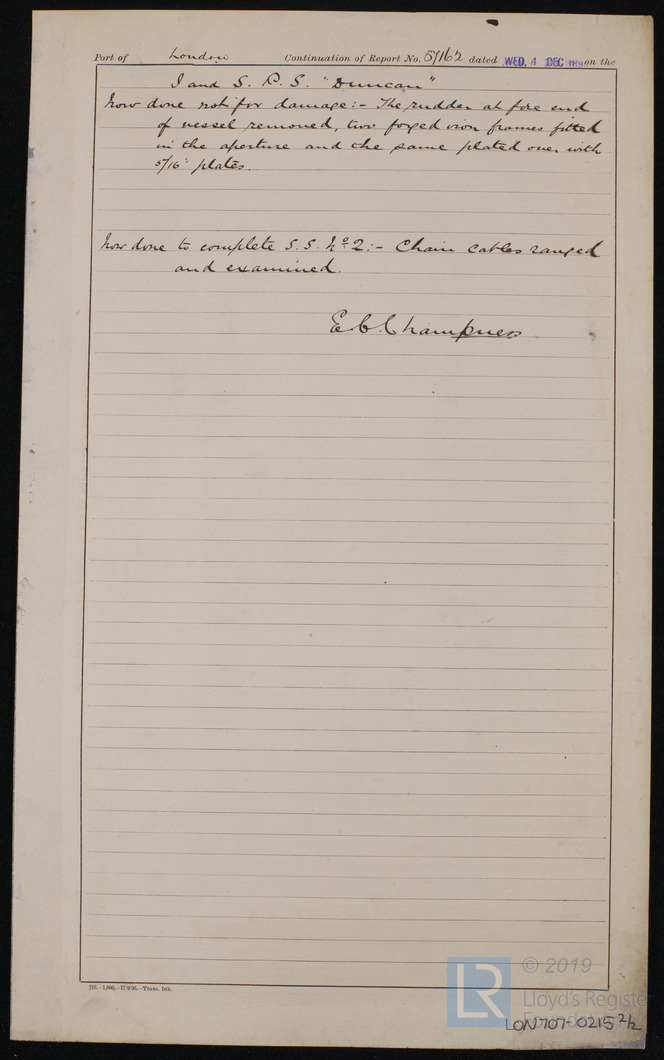 Port of London Continuation of Report No. 57162 dated WED. 4 DEC 189 on the
I and S. P. S. "Duncan"
now done not for damage:- The rudder at fore end
of vessel removed, two forged iron frames fitted
in the aperture and the same plated over with
5/16" plates.
now done to complete S.S. No 2:- Chain cables ranged
and examined.
E C Champness
210.-1,000.-17.9.95.-Trans. Ink.
LR
© 2019
Lloyd's Register
Foundation
LON707-0215 2/2